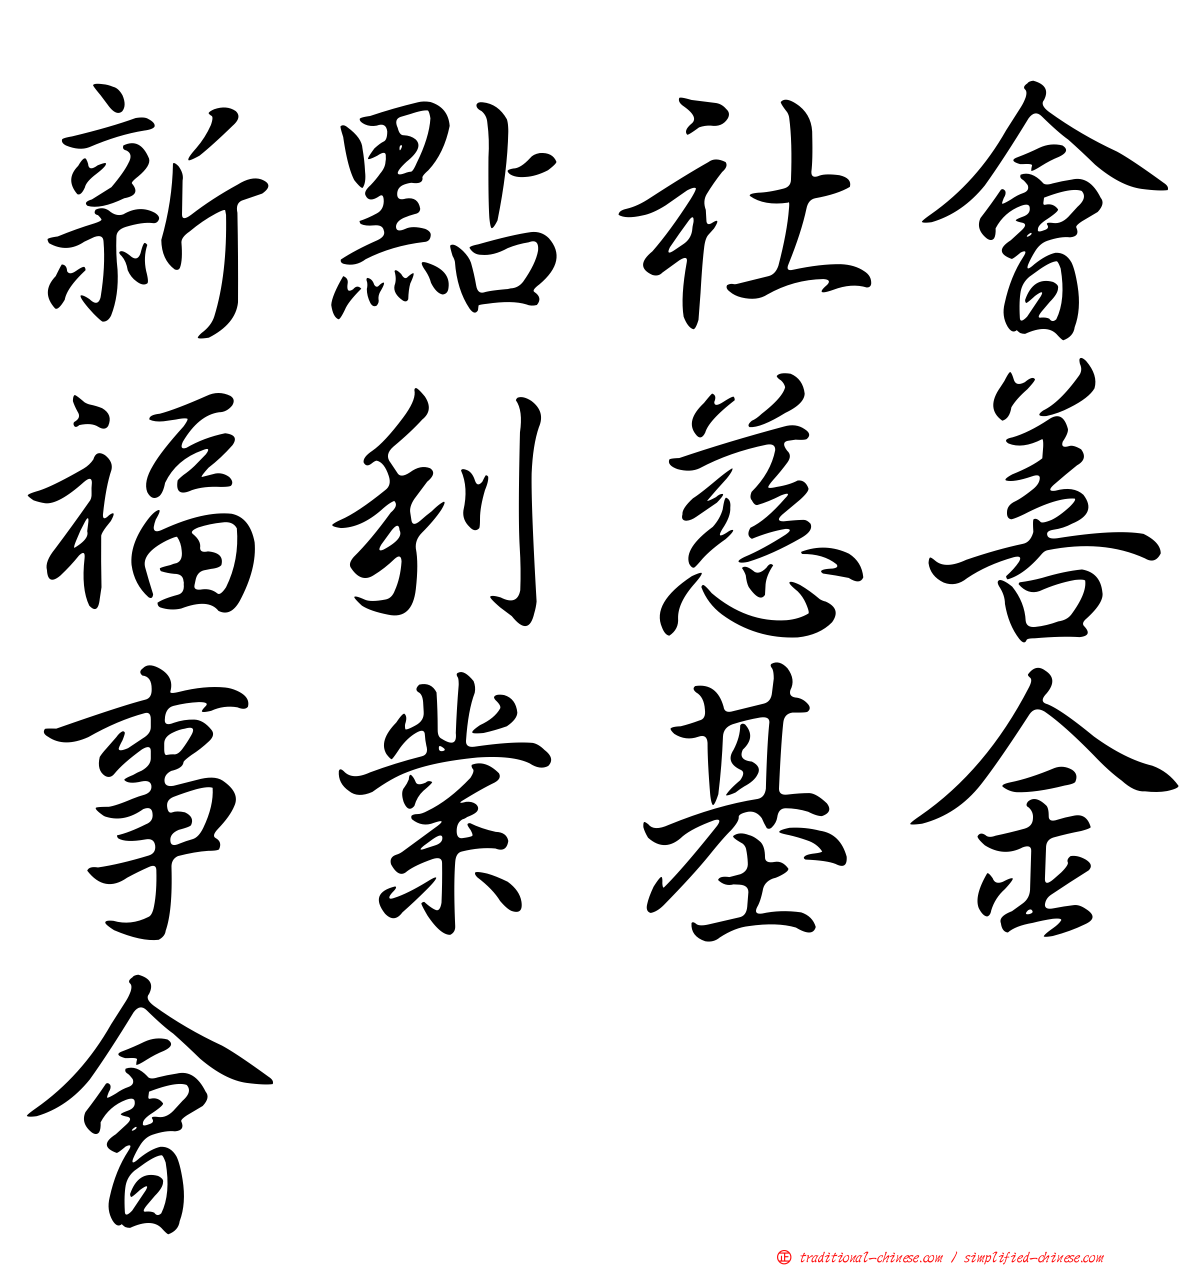 新點社會
福利慈善
事業基金
會
正 traditional-chinese.com / simplified-chinese.com